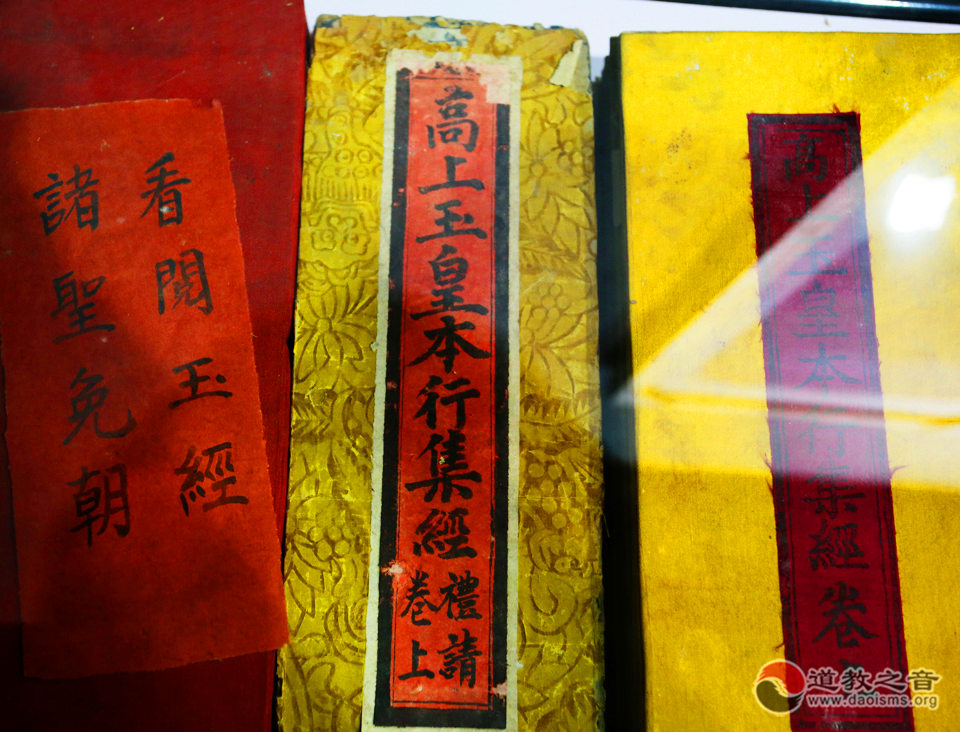 看閱玉經
諸聖免朝
高上玉皇本行集經
禮請
卷上
高上玉皇本行集經卷
道教之音
www.daoisms.org